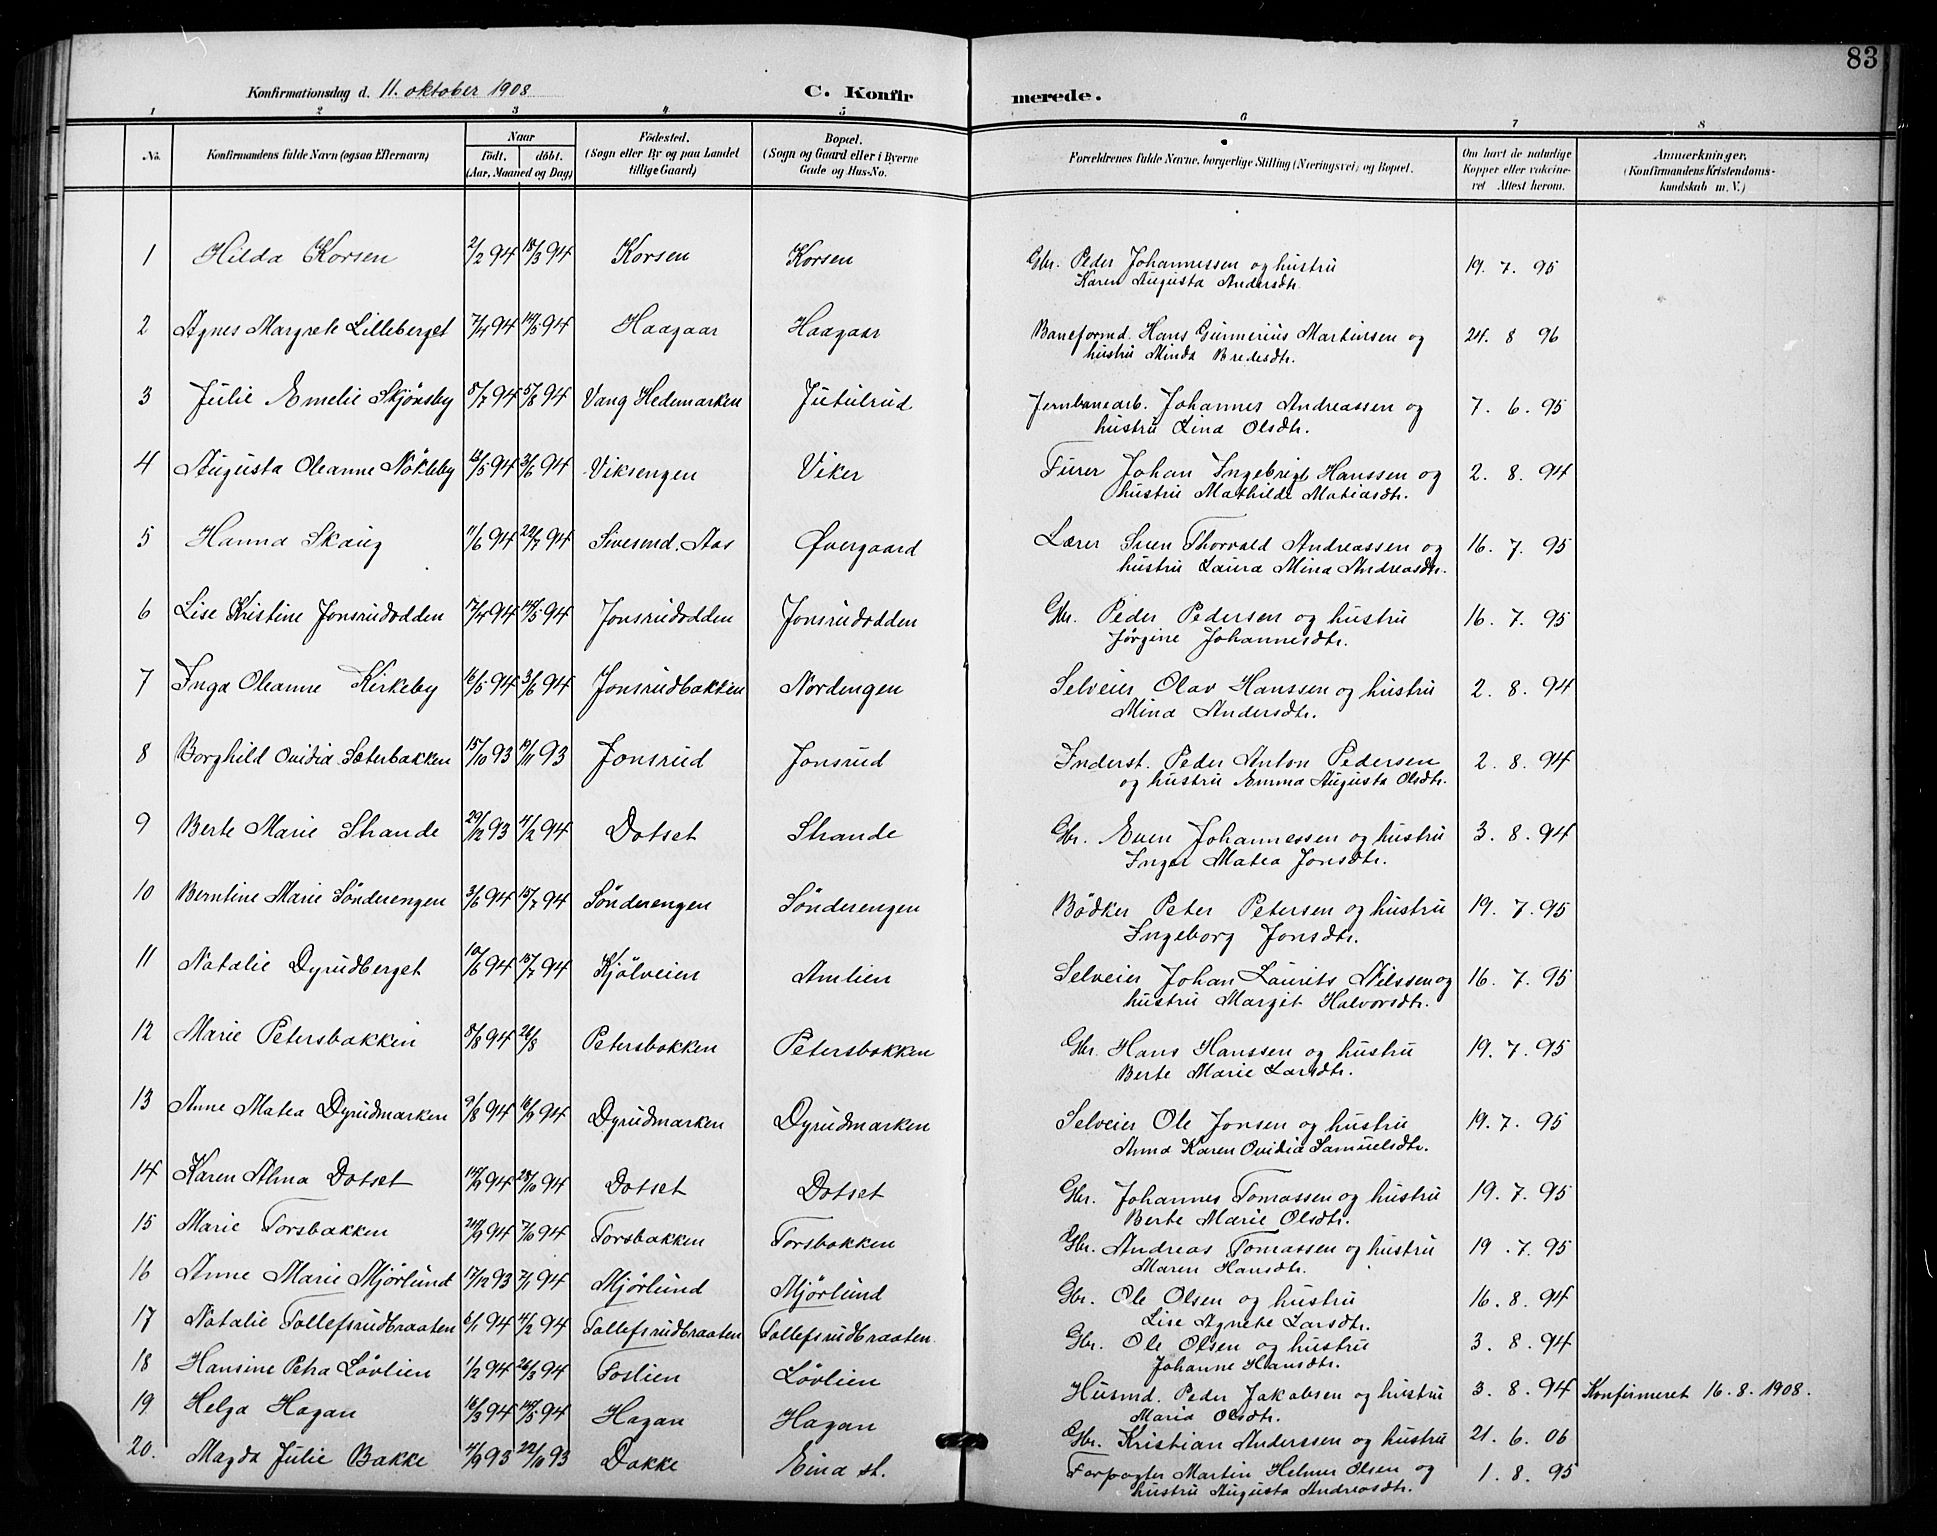 83
Konfirmationsdag d. 11. oktober 1908 C. Konfir merede.
1 2 3 4 5 6 7 8
No. Konfirmandens fulde Navn (ogsaa Efternavn) Naar Födt. döbt. (Aar, Maaned og Dag) Födested. (Sogn eller By og paa Landet tillige Gaard) Bopæl. (Sogn og Gaard eller i Byerne Gade og Hus-No. Forældrenes fulde Navne, borgerlige Stilling (Næringsvei) og Bopæl. Om havt de naturlige Kopper eller vakcineret Attest herom. Anmærkninger, (Konfirmandens Kristendomskundskab m. V.)
1 Hilda Korsen 2/2 94 18/3 94 Korsen Korsen Gbr. Peder Johannessen og hustru 19. 7. 95
Karen Augusta Andersdtr.
2 Agnes Margrete Lilleberget 7/4 94 14/5 94 Haagaar Haagaar Baneformd. Hans Gunnerius Martinsen og 24. 8 96
hustru Minda Bredesdtr.
3 Julie Emelie Skjönsby 8/7 94 5/8 94 Vang Hedemarken Jutulrud Jernbanearb. Johannes Andreassen og 7. 6. 95
hustru Lina Olsdtr.
4 Augusta Oleanne Nökleby 13/5 94 3/6 94 Viksengen Viker Furer Johan Ingebrigt Hanssen og 2. 8. 94
hustru Mathilde Matiasdtr.
5 Hanna Skaug 11/6 94 22/7 94 Sivesend. Aas Øvergaard Lærer Sven Thorvald Andreassen og 16. 7. 95
hustru Laura Mina Andreasdtr.
6 Lise Kristine Jonsrudodden 17/4 94 14/5 94 Jonsrudodden Jonsrudodden Gbr. Peder Pedersen og hustru 16. 7. 95
Jörgine Johannesdtr.
7 Inga Oleanne Kirkeby 16/5 94 3/6 94 Jonsrudbakken Nordengen Selveier Olav Hanssen og hustru 2. 8. 94
Mina Andersdtr.
8 Borghild Ovidia Sæterbakken 15/10 93 19/11 93 Jonsrud Jonsrud Inderst. Peder Anton Pedersen 2. 8. 94
og hustru Emma Augusta Olsdtr.
9 Berte Marie Strande 29/12 93 4/2 94 Dotset Strande Gbr. Even Johannessen og hustru 3. 8. 94
Inger Matea Jonsdtr.
10 Berntine Marie Sönderengen 3/6 94 15/7 94 Sönderengen Sönderengen Bödker Peter Petersen og hustru 19. 7. 95
Ingeborg Jonsdtr.
11 Natalie Dyrudberget 10/6 94 15/7 94 Kjölveien Amlien Selveier Johan Laurits Nilssen og 16. 7. 95
hustru Margit Halvorsdtr.
12 Marie Petersbakken 8/8 94 26/8 Petersbakken Petersbakken Gbr. Hans Hanssen og hustru 19. 7. 95
Berte Marie Larsdtr.
13 Anne Matea Dyrudmarken 9/8 94 16/9 94 Dyrudmarken Dyrudmarken Selveier Ole Jonsen og hustru 19. 7. 95
Anna Karen Ovidia Samuelsdtr.
14 Karen Alma Dotset 14/9 94 28/10 94 Dotset Dotset Gbr. Johannes Tomassen og hustru 19. 7. 95
Berte Marie Olsdtr.
15 Marie Torsbakken 20/9 94 7/10 94 Torsbakken Torsbakken Gbr. Andreas Tomassen og hustru 19. 7. 95
Maren Hansdtr.
16 Anne Marie Mjörlund 17/12 93 7/1 94 Mjörlund Mjörlund Gbr. Ole Olsen og hustru 16. 8. 94
Lise Agnete Larsdtr.
17 Natalie Tollefsrudbraaten 6/1 94 11/2 94 Tollefsrudbraaten Tollefsrudbraaten. Gbr. Ole Olsen og hustru 3. 8. 94
Johanne Hansdtr.
18 Hansine Petra Lövlien 1/2 94 26/3 94 Foslien Lövlien Husmd. Peder Jakobsen og hustru 3. 8. 94 Konfirmeret 16. 8. 1908.
Maria Olsdtr.
19 Helga Hagan 16/3 94 14/5 94 Hagan Hagan Gbr. Kristian Anderssen og hustru 21. 6. 06
20. Magda Julie Bakke 4/9 93 22/10 93 Dakke Eina st. Forpagter Martin Helmer Olsen og 1. 8. 95
hustru Augusta Andreasdtr.